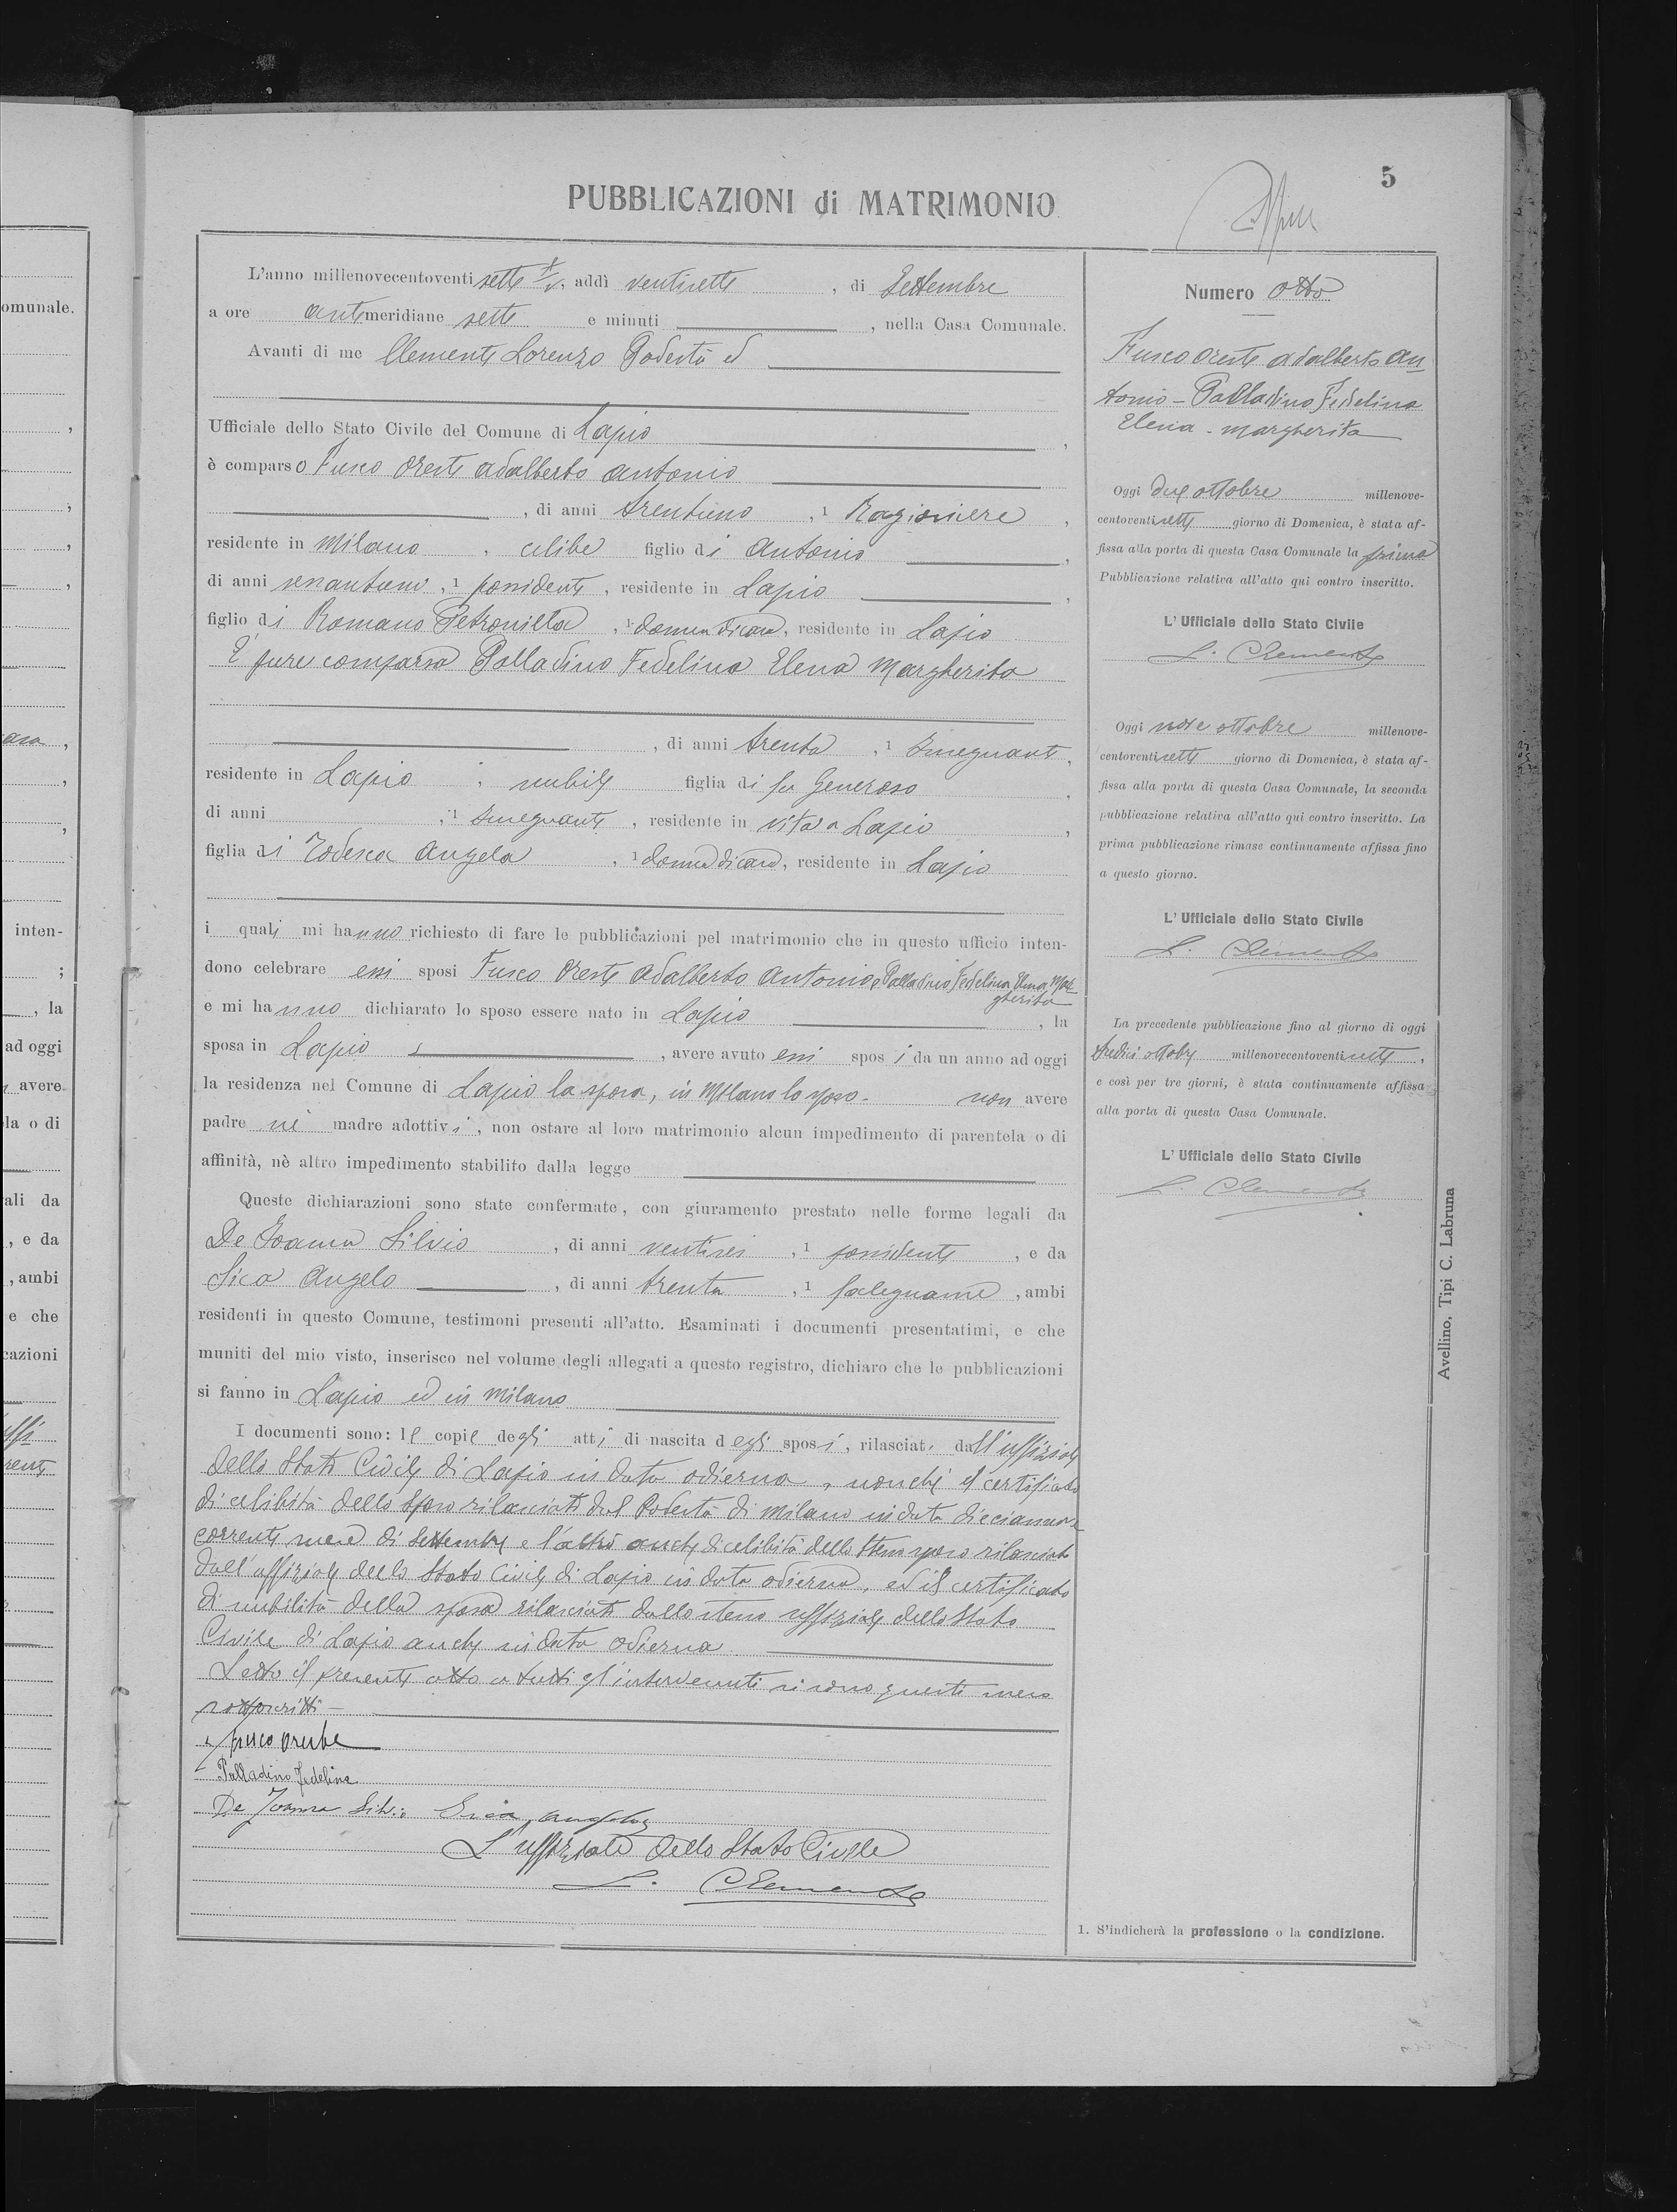 5
PUBBLICAZIONI di MATRIMONIO
L'anno millenovecentoventi sette V, addì ventisette, di Settembre
a ore antimeridiane sette e minuti, nella Casa Comunale.
Avanti di me Clemente Lorenzo Podestà ed
Ufficiale dello Stato Civile del Comune di Lapio,
è comparso Fusco Oreste Adalberto Antonio
, di anni trentuno, 1 Ragioniere,
residente in Milano, celibe figlio di Antonio,
di anni sessantuno, 1 possidente, residente in Lapio,
figlio di Romano Petronilla, 1 donna di casa, residente in Lapio
È pure comparsa Palladino Fedelina Elena Margherita
, di anni trenta, 1 Insegnante,
residente in Lapio, nubile figlia di fu Generoso,
di anni, 1 Insegnante, residente in vita a Lapio,
figlia di Todesca Angela, 1 donna di casa, residente in Lapio
i quali mi hanno richiesto di fare le pubblicazioni pel matrimonio che in questo ufficio inten-
dono celebrare essi sposi Fusco Oreste Adalberto Antonio e Palladino Fedelina Elena Mar
gherita
e mi hanno dichiarato lo sposo essere nato in Lapio, la
sposa in Lapio, avere avuto essi sposi da un anno ad oggi
la residenza nel Comune di Lapio la sposa, in Milano lo sposo. non avere
padre nè madre adottivi, non ostare al loro matrimonio alcun impedimento di parentela o di
affinità, nè altro impedimento stabilito dalla legge
Queste dichiarazioni sono state confermate, con giuramento prestato nelle forme legali da
De Joanna Silvio, di anni ventisei, 1 possidente, e da
Sica Angelo, di anni trenta, 1 falegname, ambi
residenti in questo Comune, testimoni presenti all'atto. Esaminati i documenti presentatimi, e che
muniti del mio visto, inserisco nel volume degli allegati a questo registro, dichiaro che le pubblicazioni
si fanno in Lapio ed in Milano
I documenti sono: le copie degli atti di nascita degli sposi, rilasciati dall'uffiziale
dello Stato Civile di Lapio in data odierna, nonchè il certificato
di celibità dello sposo rilasciato dal Podestà di Milano in data diecinnove
corrente mese di Settembre e l'altro anche di celibità dello stesso sposo rilasciato
dall'uffiziale dello Stato Civile di Lapio in data odierna, ed il certificato
di nubilità della sposa rilasciato dallo stesso uffiziale dello Stato
Civile di Lapio anche in data odierna
Letto il presente atto a tutti gl'intervenuti si sono questi meco
sottoscritti -
Fusco Oreste
Palladino Fedelina
De Joanna Silvio Sica Angelo
L'uffiziale dello Stato Civile
L. Clemente
Numero otto
Fusco Oreste Adalberto An
tonio - Palladino Fedelina
Elena - Margherita
Oggi due ottobre millenove-
centoventisette giorno di Domenica, è stata af-
fissa alla porta di questa Casa Comunale la prima
Pubblicazione relativa all'atto qui contro inscritto.
L'Ufficiale dello Stato Civile
L. Clemente
Oggi nove ottobre millenove-
centoventisette giorno di Domenica, è stata af-
fissa alla porta di questa Casa Comunale, la seconda
pubblicazione relativa all'atto qui contro inscritto. La
prima pubblicazione rimase continuamente affissa fino
a questo giorno.
L'Ufficiale dello Stato Civile
L. Clemente
La precedente pubblicazione fino al giorno di oggi
tredici ottobre millenovecentoventisette,
e così per tre giorni, è stata continuamente affissa
alla porta di questa Casa Comunale.
L'Ufficiale dello Stato Civile
L. Clemente
1. S'indicherà la professione o la condizione.
Avellino, Tipi C. Labruna
omunale.
inten-
;
, la
ad oggi
avere
la o di
ali da
, e da
, ambi
e che
cazioni